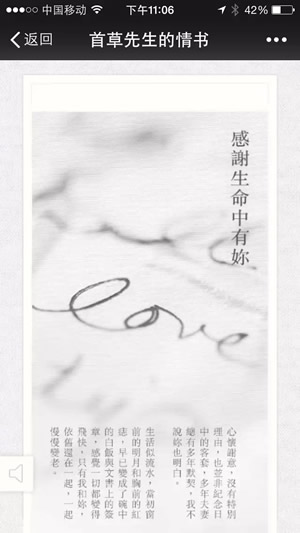 中国移动 下午11:06 42%
返回 首草先生的情书
感謝生命中有妳
love
心懷謝意，沒有特別
理由，也並非紀念日
中的客套，多年夫妻
總有多年默契，我不
說妳也明白。
生活似流水，當初窗
前的明月和胸前的紅
痣，早已變成了碗中
的白飯與文書上的簽
章，感覺一切都變得
飛快，只有我和妳，
依舊還在一起，一起
慢慢變老。